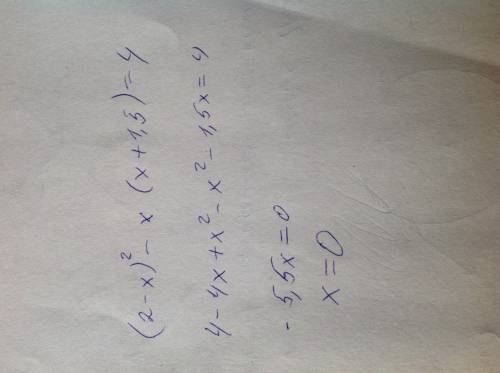 (2-x)² - x (x+1,5) = 4
4-4x+x² - x² - 1,5x = 4
- 5,5x = 0
x = 0